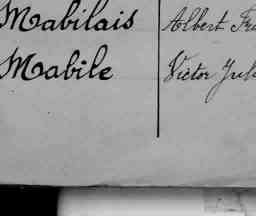 Mabilais Albert
Mabile Victor